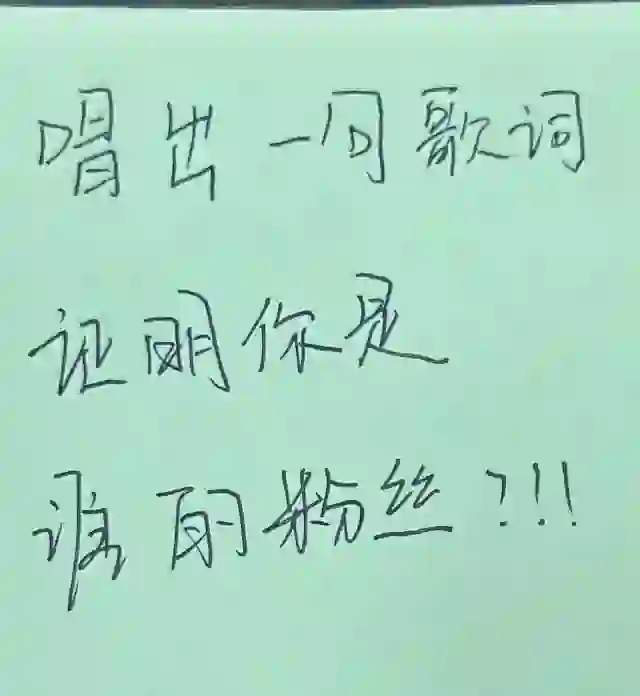 唱出一句歌词
证明你是
谁的粉丝?!!!